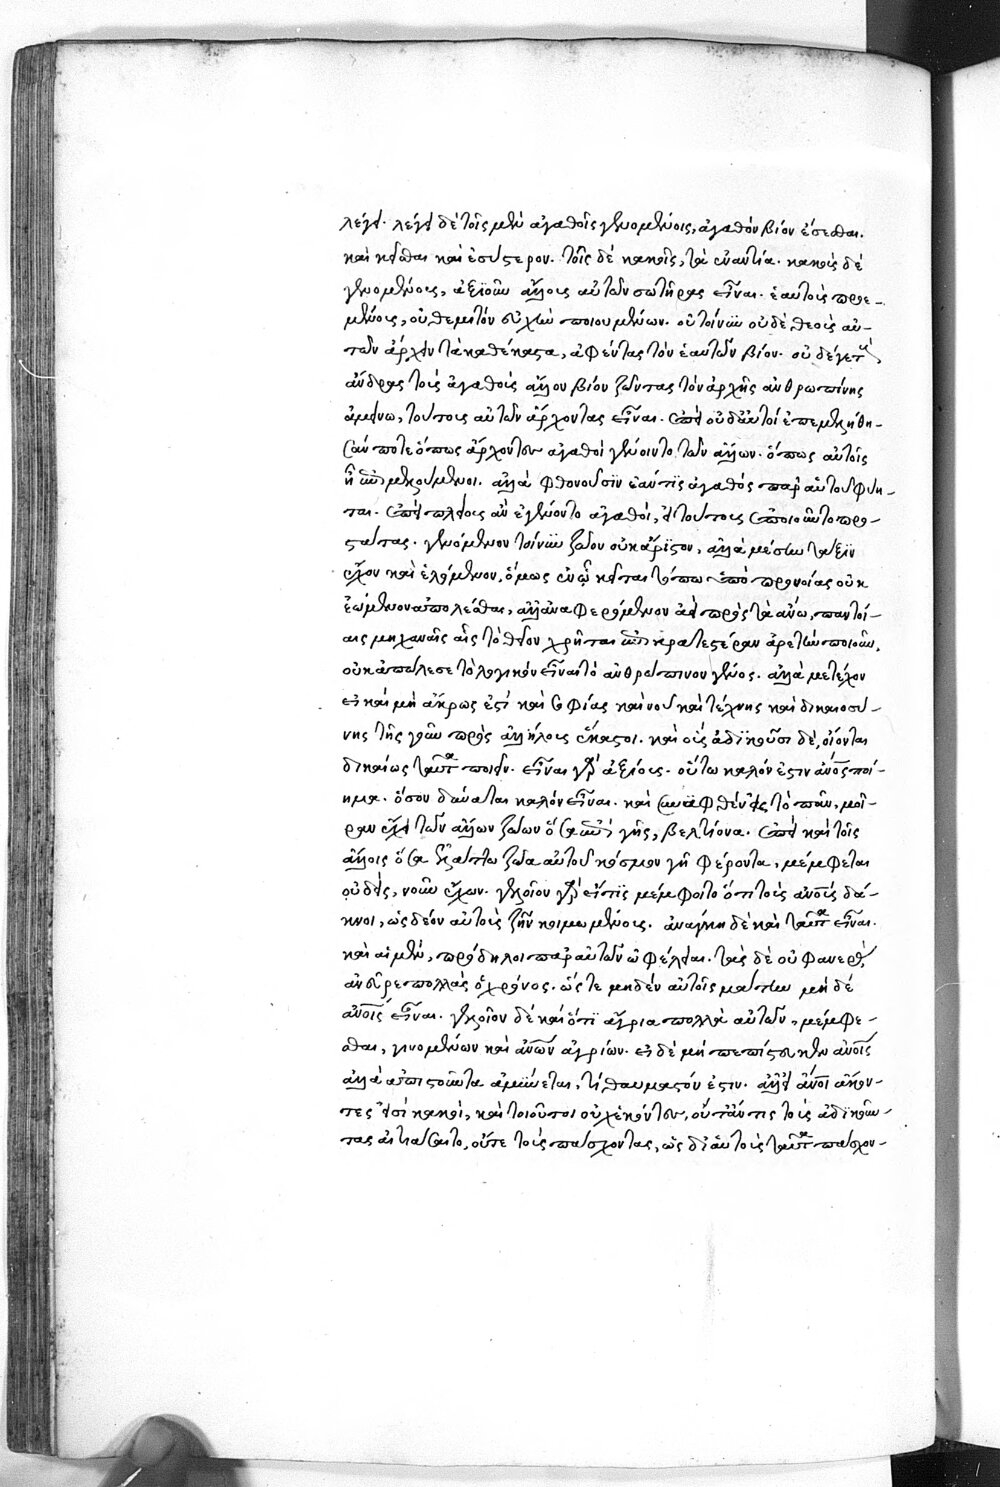 λέγει. λέγει δὲ τοῖς μὲν ἀγαθοῖς γενομένοις, ἀγαθὸν βίον ἔσεσθαι.
καὶ κεῖσθαι καὶ ἐσύστερον. τοῖς δὲ κακοῖς, τὰ ἐναντία. κακοὺς δὲ
γενομένους, ἀξιοῦν ἄλλους αὐτῶν σωτῆρας εἶναι. ἑαυτοὺς προε-
μένους, οὐ θεμιτὸν εὐχὴν ποιουμένων. οὐ τοίνυν οὐδὲ θεοὺς αὐ-
τῶν ἄρχειν τὰ καθέκαστα, ἀφέντας τὸν ἑαυτῶν βίον. οὐδέ γε τοὺς
ἄνδρας τοὺς ἀγαθοὺς ἄλλον βίον ζῶντας τὸν ἀρχῆς ἀνθρωπίνης
ἀμείνω, τούτους αὐτῶν ἄρχοντας εἶναι. ἐπεὶ οὐδ' αὐτοὶ ἐπεμελήθη-
σάν ποτε ὅπως ἄρχοντες ἀγαθοὶ γένοιντο τῶν ἄλλων. ὅπως αὐτοῖς
ᾖ ἐπιμελούμενοι. ἀλλὰ φθονοῦσιν ἐάν τις ἀγαθὸς παρ' αὑτοῦ φύη-
ται. ἐπεὶ πλείους ἂν ἐγένοντο ἀγαθοὶ, εἰ τούτους ἐποιοῦντο προ-
στάτας. γενόμενον τοίνυν ζῶον οὐκ ἄριστον, ἀλλὰ μέσην τάξιν
ἔχον καὶ ἑλόμενον, ὅμως ἐν ᾧ κεῖται τόπω ὑπὸ προνοίας οὐκ
ἐώμενον ἀπολέσθαι, ἀλλὰ ἀναφερόμενον ἀεὶ πρὸς τὰ ἄνω, παντοί-
αις μηχαναῖς αἷς τὸ θεῖον χρῆται ἐπικρατεστέραν ἀρετὴν ποιοῦν,
οὐκ ἀπώλεσε τὸ λογικὸν εἶναι τὸ ἀνθρώπινον γένος. ἀλλὰ μετέχον
εἰ καὶ μὴ ἄκρως ἐστὶ καὶ σοφίας καὶ νοῦ καὶ τέχνης καὶ δικαιοσύ-
νης τῆς γοῦν πρὸς ἀλλήλους ἕκαστοι. καὶ οὓς ἀδικοῦσι δὲ, οἴονται
δικαίως ταῦτα ποιεῖν. εἶναι γὰρ ἀξίους. οὕτω καλόν ἐστιν ἄνθρωπος ποί-
ημα. ὅσον δύναται καλὸν εἶναι. καὶ συνυφανθὲν εἰς τὸ πᾶν, μοῖ-
ραν ἔχει τῶν ἄλλων ζώων ὅσα ἐπὶ γῆς, βελτίονα. ἐπεὶ καὶ τοῖς
ἄλλοις ὅσα ἐλάττω ζῶα αὐτοῦ κόσμον γῆ φέροντα, μέμφεται
οὐδεὶς, νοῦν ἔχων. γελοῖον γὰρ εἴ τις μέμφοιτο ὅτι τοὺς ἀνθρώπους δά-
κνοι, ὡς δέον αὐτοὺς ζῆν κοιμωμένους. ἀνάγκη δὲ καὶ ταῦτα εἶναι.
καὶ αἱ μὲν, πρόδηλοι παρ' αὐτῶν ὠφέλειαι. τὰς δὲ οὐ φανερὰς,
ἀνεῦρε πολλὰς ὁ χρόνος. ὥστε μηδὲν αὐτοῖς μάτην μηδὲ
ἀνθρώποις εἶναι. γελοῖον δὲ καὶ ὅτι ἄγρια πολλὰ αὐτῶν μέμφε-
σθαι, γινομένων καὶ ἀνθρώπων ἀγρίων. εἰ δὲ μὴ πεπίστευκεν ἀνθρώποις
ἀλλὰ ἀπιστοῦντα ἀμύνεται, τί θαυμαστόν ἐστιν. ἀλλ' εἰ ἄνθρωποι ἄκον-
τές εἰσι κακοὶ, καὶ τοιοῦτοι οὐχ ἑκόντες, οὔτ' ἄν τις τοὺς ἀδικοῦν-
τας αἰτιάσαιτο, οὔτε τοὺς πάσχοντας, ὡς δι' αὐτοὺς ταῦτα πάσχον-